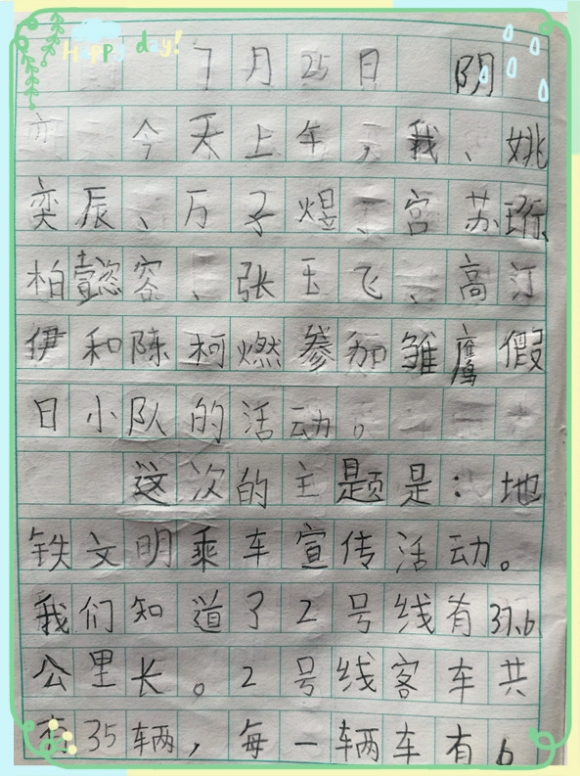 Happy day!
7月25日 阴
今天上午，我、姚
奕辰、万子煜、宫苏珩
柏懿容、张玉飞、高汀
伊和陈柯燃参加雏鹰假
日小队的活动。
这次的主题是：地
铁文明乘车宣传活动。
我们知道了2号线有37.6
公里长。2号线客车共
有35辆，每一辆车有6